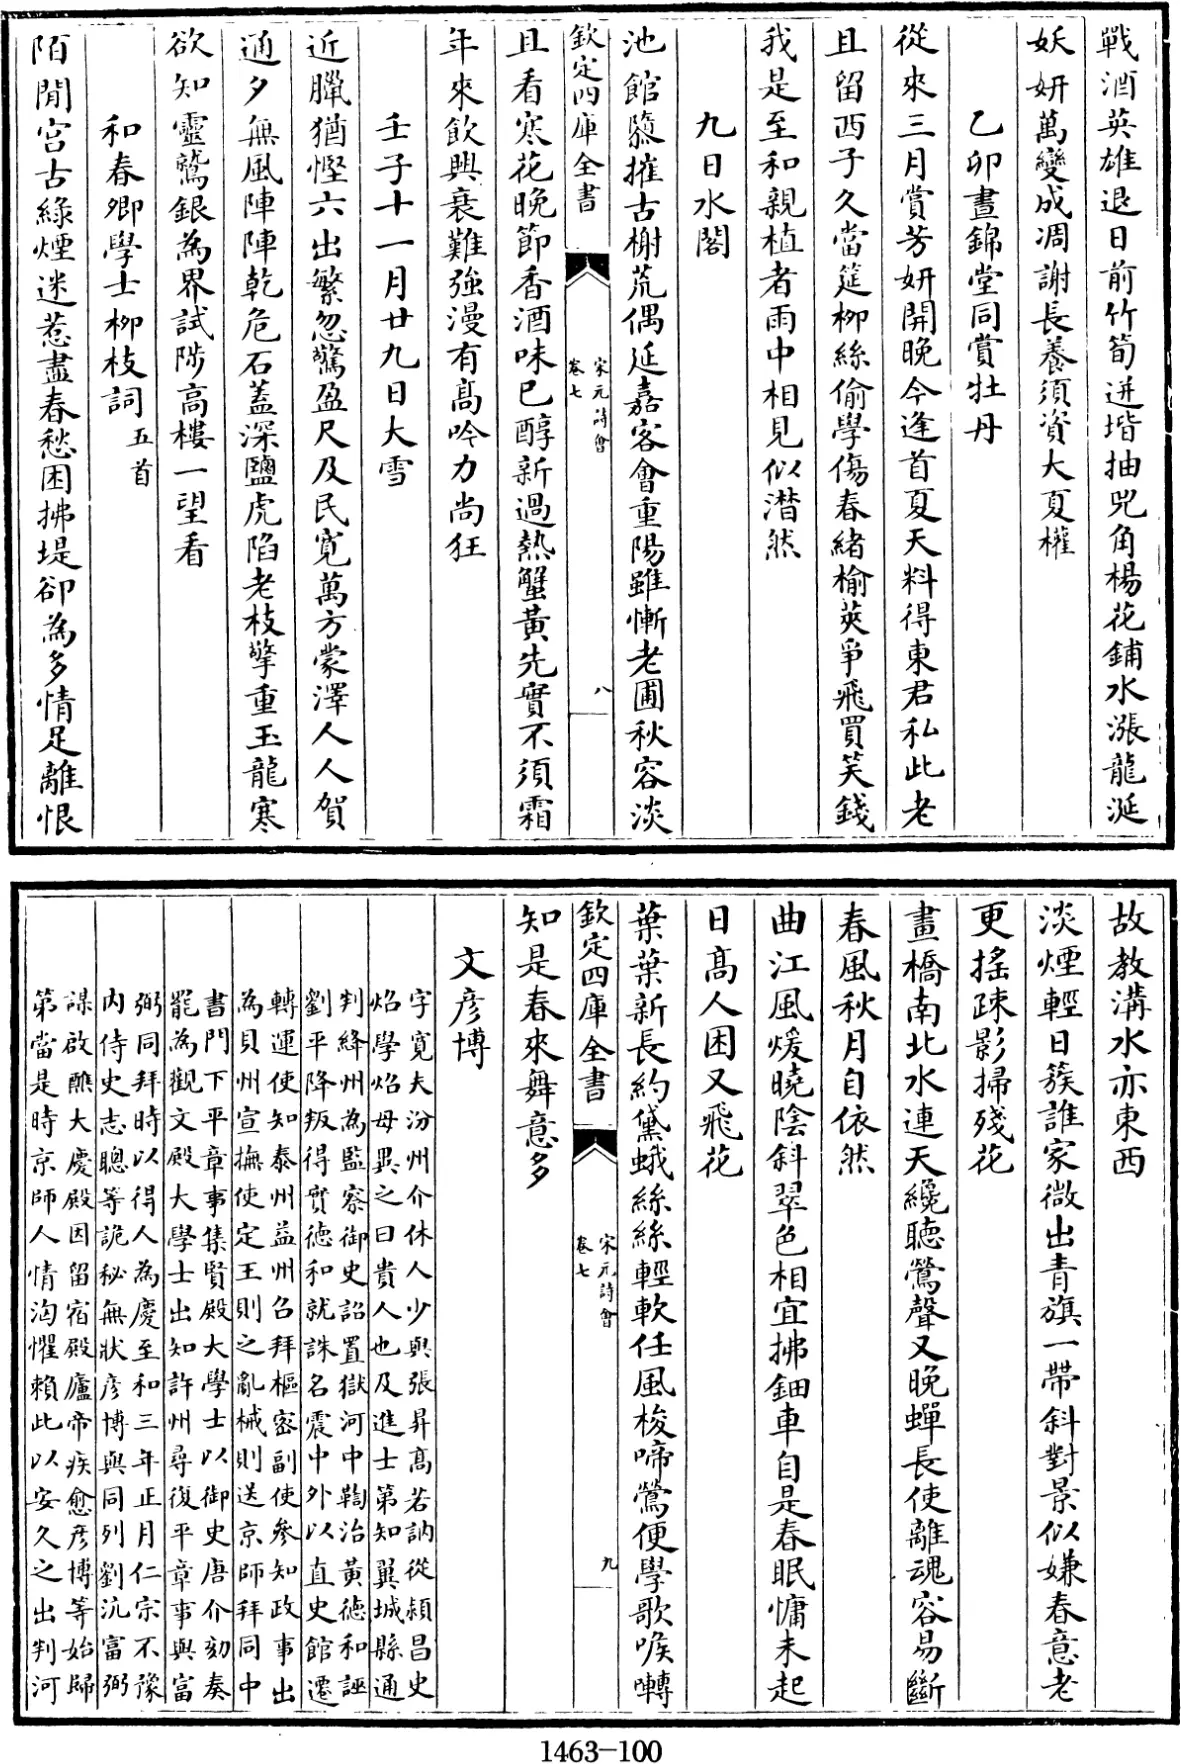 戰酒英雄退日前竹筍迸堦抽兕角楊花鋪水漲龍涎
妖妍萬變成凋謝長養須資大夏權
乙卯晝錦堂同賞牡丹
從來三月賞芳妍開晚今逢首夏天料得東君私此老
且留西子久當筵柳絲偷學傷春緒榆莢爭飛買笑錢
我是至和親植者雨中相見似潸然
九日水閣
池館隳摧古榭荒偶延嘉客會重陽雖慚老圃秋容淡
欽定四庫全書
宋元詩會
卷七
八
且看寒花晚節香酒味已醇新過熱蟹黃先實不須霜
年來飲興衰難強漫有高吟力尚狂
壬子十一月廿九日大雪
近臘猶慳六出繁忽驚盈尺及民寬萬方蒙澤人人賀
通夕無風陣陣乾危石蓋深鹽虎陷老枝擎重玉龍寒
欲知靈鷲銀為界試陟高樓一望看
和春卿學士柳枝詞五首
陌閒宫古綠煙迷惹盡春愁困拂堤卻為多情足離恨
故教溝水亦東西
淡煙輕日簇誰家微出青旗一帶斜對景似嫌春意老
更搖疎影掃殘花
畫橋南北水連天纔聽鶯聲又晚蟬長使離魂容易斷
春風秋月自依然
曲江風煖曉陰斜翠色相宜拂鈿車自是春眠慵未起
日高人困又飛花
葉葉新長約黛蛾絲絲輕軟任風梭啼鶯便學歌喉囀
欽定四庫全書
宋元詩會
卷七
九
知是春來舞意多
文彦博
字寛夫汾州介休人少與張昇高若訥從潁昌史
炤學炤母異之曰貴人也及進士第知翼城縣通
判絳州為監察御史詔置獄河中鞫治黃德和誣
劉平降叛得實德和就誅名震中外以直史館遷
轉運使知泰州益州召拜樞密副使參知政事出
為貝州宣撫使定王則之亂械則送京師拜同中
書門下平章事集賢殿大學士以御史唐介劾奏
罷為觀文殿大學士出知許州尋復平章事與富
弼同拜時以得人為慶至和三年正月仁宗不豫
内侍史志聰等詭秘無狀彦博與同列劉沆富弼
謀啟醮大慶殿因留宿殿廬帝疾愈彦博等始歸
第當是時京師人情洶懼賴此以安久之出判河
1463-100